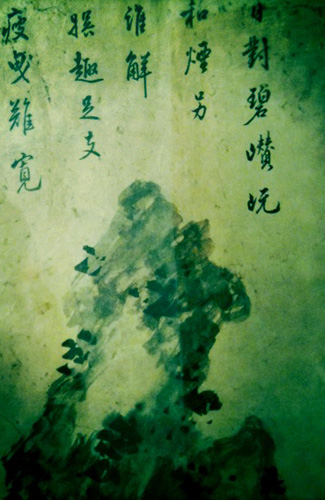 日對碧巑岏
和煙另
誰解
撰趣足支
瘦曳難寬